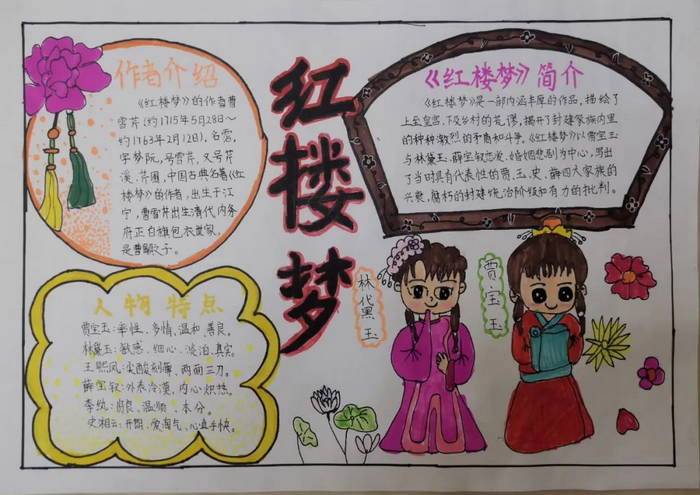 红楼梦
作者介绍
《红楼梦》的作者曹
雪芹(约1715年5月28日~
约1763年2月12日),名霑,
字梦阮,号雪芹,又号芹
溪、芹圃,中国古典名著《红
楼梦》的作者,出生于江
宁,曹雪芹出生清代内务
府正白旗包衣世家,
是曹頫之子。
《红楼梦》简介
《红楼梦》是一部内涵丰厚的作品,描绘了
上至皇宫、下及乡村的
种种激烈的矛盾和斗争。《红楼梦》以贾宝玉
与林黛玉、薛宝钗恋爱、婚姻悲剧为中心,写出
了当时具有代表性的贾、王、史、薛四大家族的
兴衰,腐朽的封建统治阶级和有力的批判。
人物特点
贾宝玉:率性、多情、温和、善良。
林黛玉:敏感、细心、淡泊、真实。
王熙凤:尖酸刻薄、两面三刀。
薛宝钗:外表冷漠、内心炽热。
李纨:善良、温顺、本分。
史湘云:开朗、爱淘气、心直手快。
林代黑玉
贾宝玉